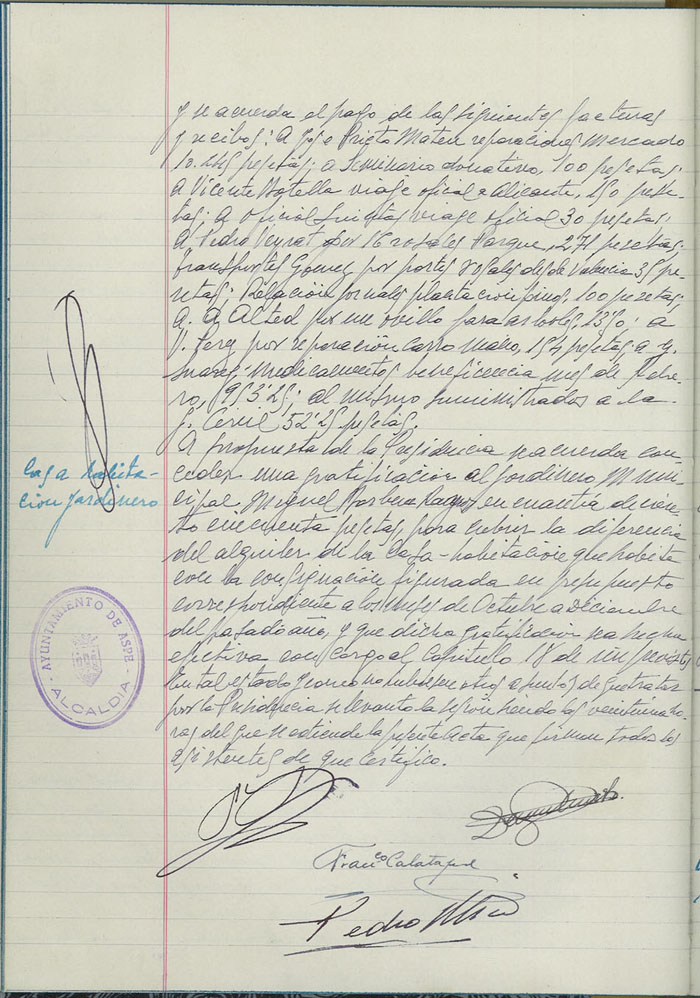 y se acuerda el pago de las siguientes facturas
y recibos: A José Prieto Mateu reparaciones Mercado
pesetas; a Seminario donativo, 100 pesetas;
a Vicente Botella viaje oficial a Alicante, 150 pese-
tas; A oficial Quintas viaje oficial 30 pesetas;
A Pedro Veyrat por 16 rosales Parque, 275 pesetas;
Transportes Gomez por portes rosales desde Valencia 35 pe-
setas; Relación jornales plantación pinos, 100 pesetas;
a A. Alted por un ovillo para arboles, 13'50; a
por reparación carro mano, 154 pesetas; a
Suarez, medicamentos beneficencia mes de Febre-
ro, 1953'25; al mismo suministrados a la
G. Civil 52'25 pesetas.
A propuesta de la Presidencia se acuerda con-
ceder una gratificación al jardinero Muni-
cipal, Miguel en cuantía de cien-
to cincuenta pesetas, para cubrir la diferencia
del alquiler de la Casa-habitación que habita
con la consignación figurada en presupuesto
correspondiente a los meses de Octubre a Diciembre
del pasado año, y que dicha gratificación sea hecha
efectiva con cargo al Capitulo 18 de
En tal estado y como no hubiese mas asuntos de que tratar
por la Presidencia se levanta la sesión siendo las veintiuna ho-
ras del que se extiende la presente acta que firman todos los
asistentes de que certifico.
Casa habita-
ción jardinero
AYUNTAMIENTO DE ASPE
ALCALDIA
Franco Calatayud
Pedro